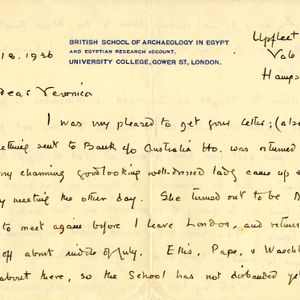 Upfleet
BRITISH SCHOOL OF ARCHAEOLOGY IN EGYPT
AND EGYPTIAN RESEARCH ACCOUNT,
UNIVERSITY COLLEGE, GOWER ST, LONDON.
Vale
Hamps
18. 1936
Dear Veronica
I was very pleased to get your letter; (also
sent to Bank of Australia was returned
my charming goodlooking well-dressed lady came up
meeting the other day. She turned out to be
to meet again before I leave London, and return
off about middle of July. Ellis, Pape, & Waechter
about here, so the School has not disbanded yet